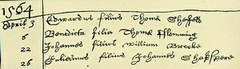 1564
April 3 Edwardus filius Thomae Shaffe
6 Benedicta filia Thomae Flemming
22 Johannes filius William Brooks
26 Gulielmus filius Johannes Shakspere